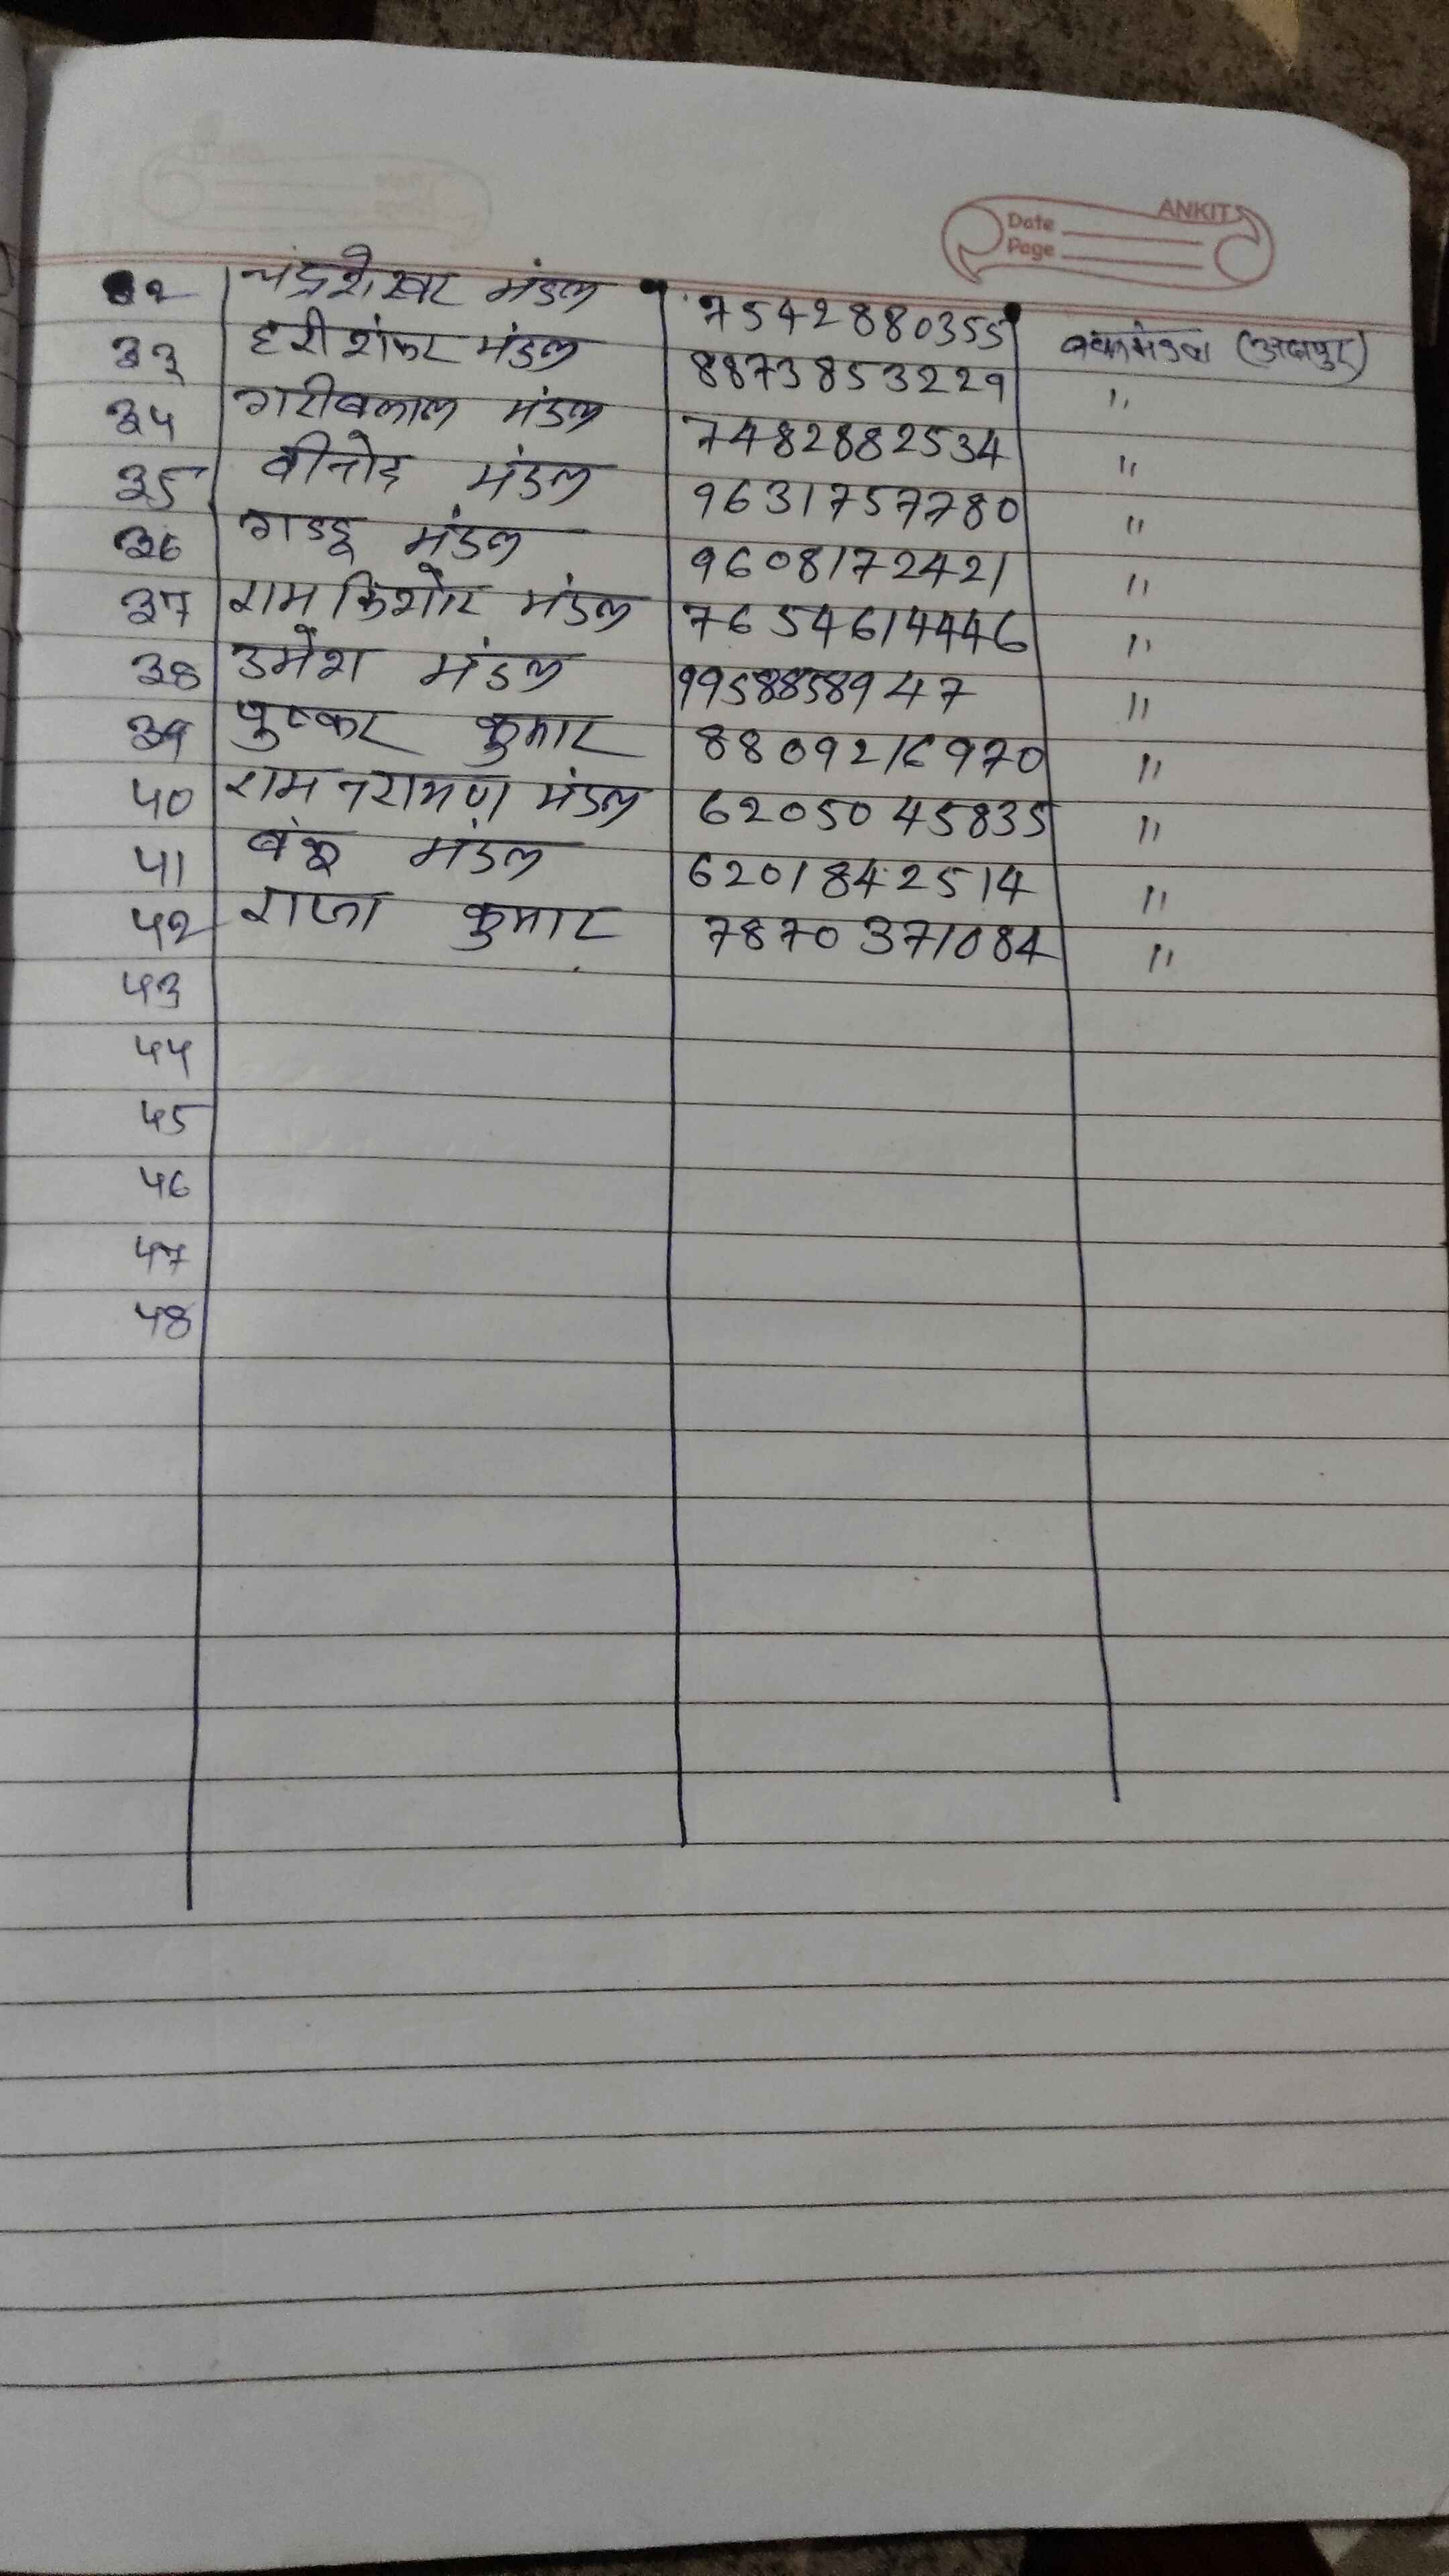 ANKIT
Date
Page
३२ चंद्रशेखर मंडल 7542880355
३३ हरी शंकर मंडल 8873853229 (अदलपुर)
३४ गरीबलाल मंडल 7482882534 "
३5 वीनोद मंडल 9631757780 "
३6 गडडू मंडल 9608172421 "
३7 राम किशोर मंडल 7654614446 "
३8 उमेश मंडल 9958858947 "
३9 पुष्कर कुमार 8809216970 "
५0 राम नरायण मंडल 6205045835 "
५1 मंडल 6201842514 "
५२ राजा कुमार 7870371084 "
५3
५५
५5
५6
५7
५8